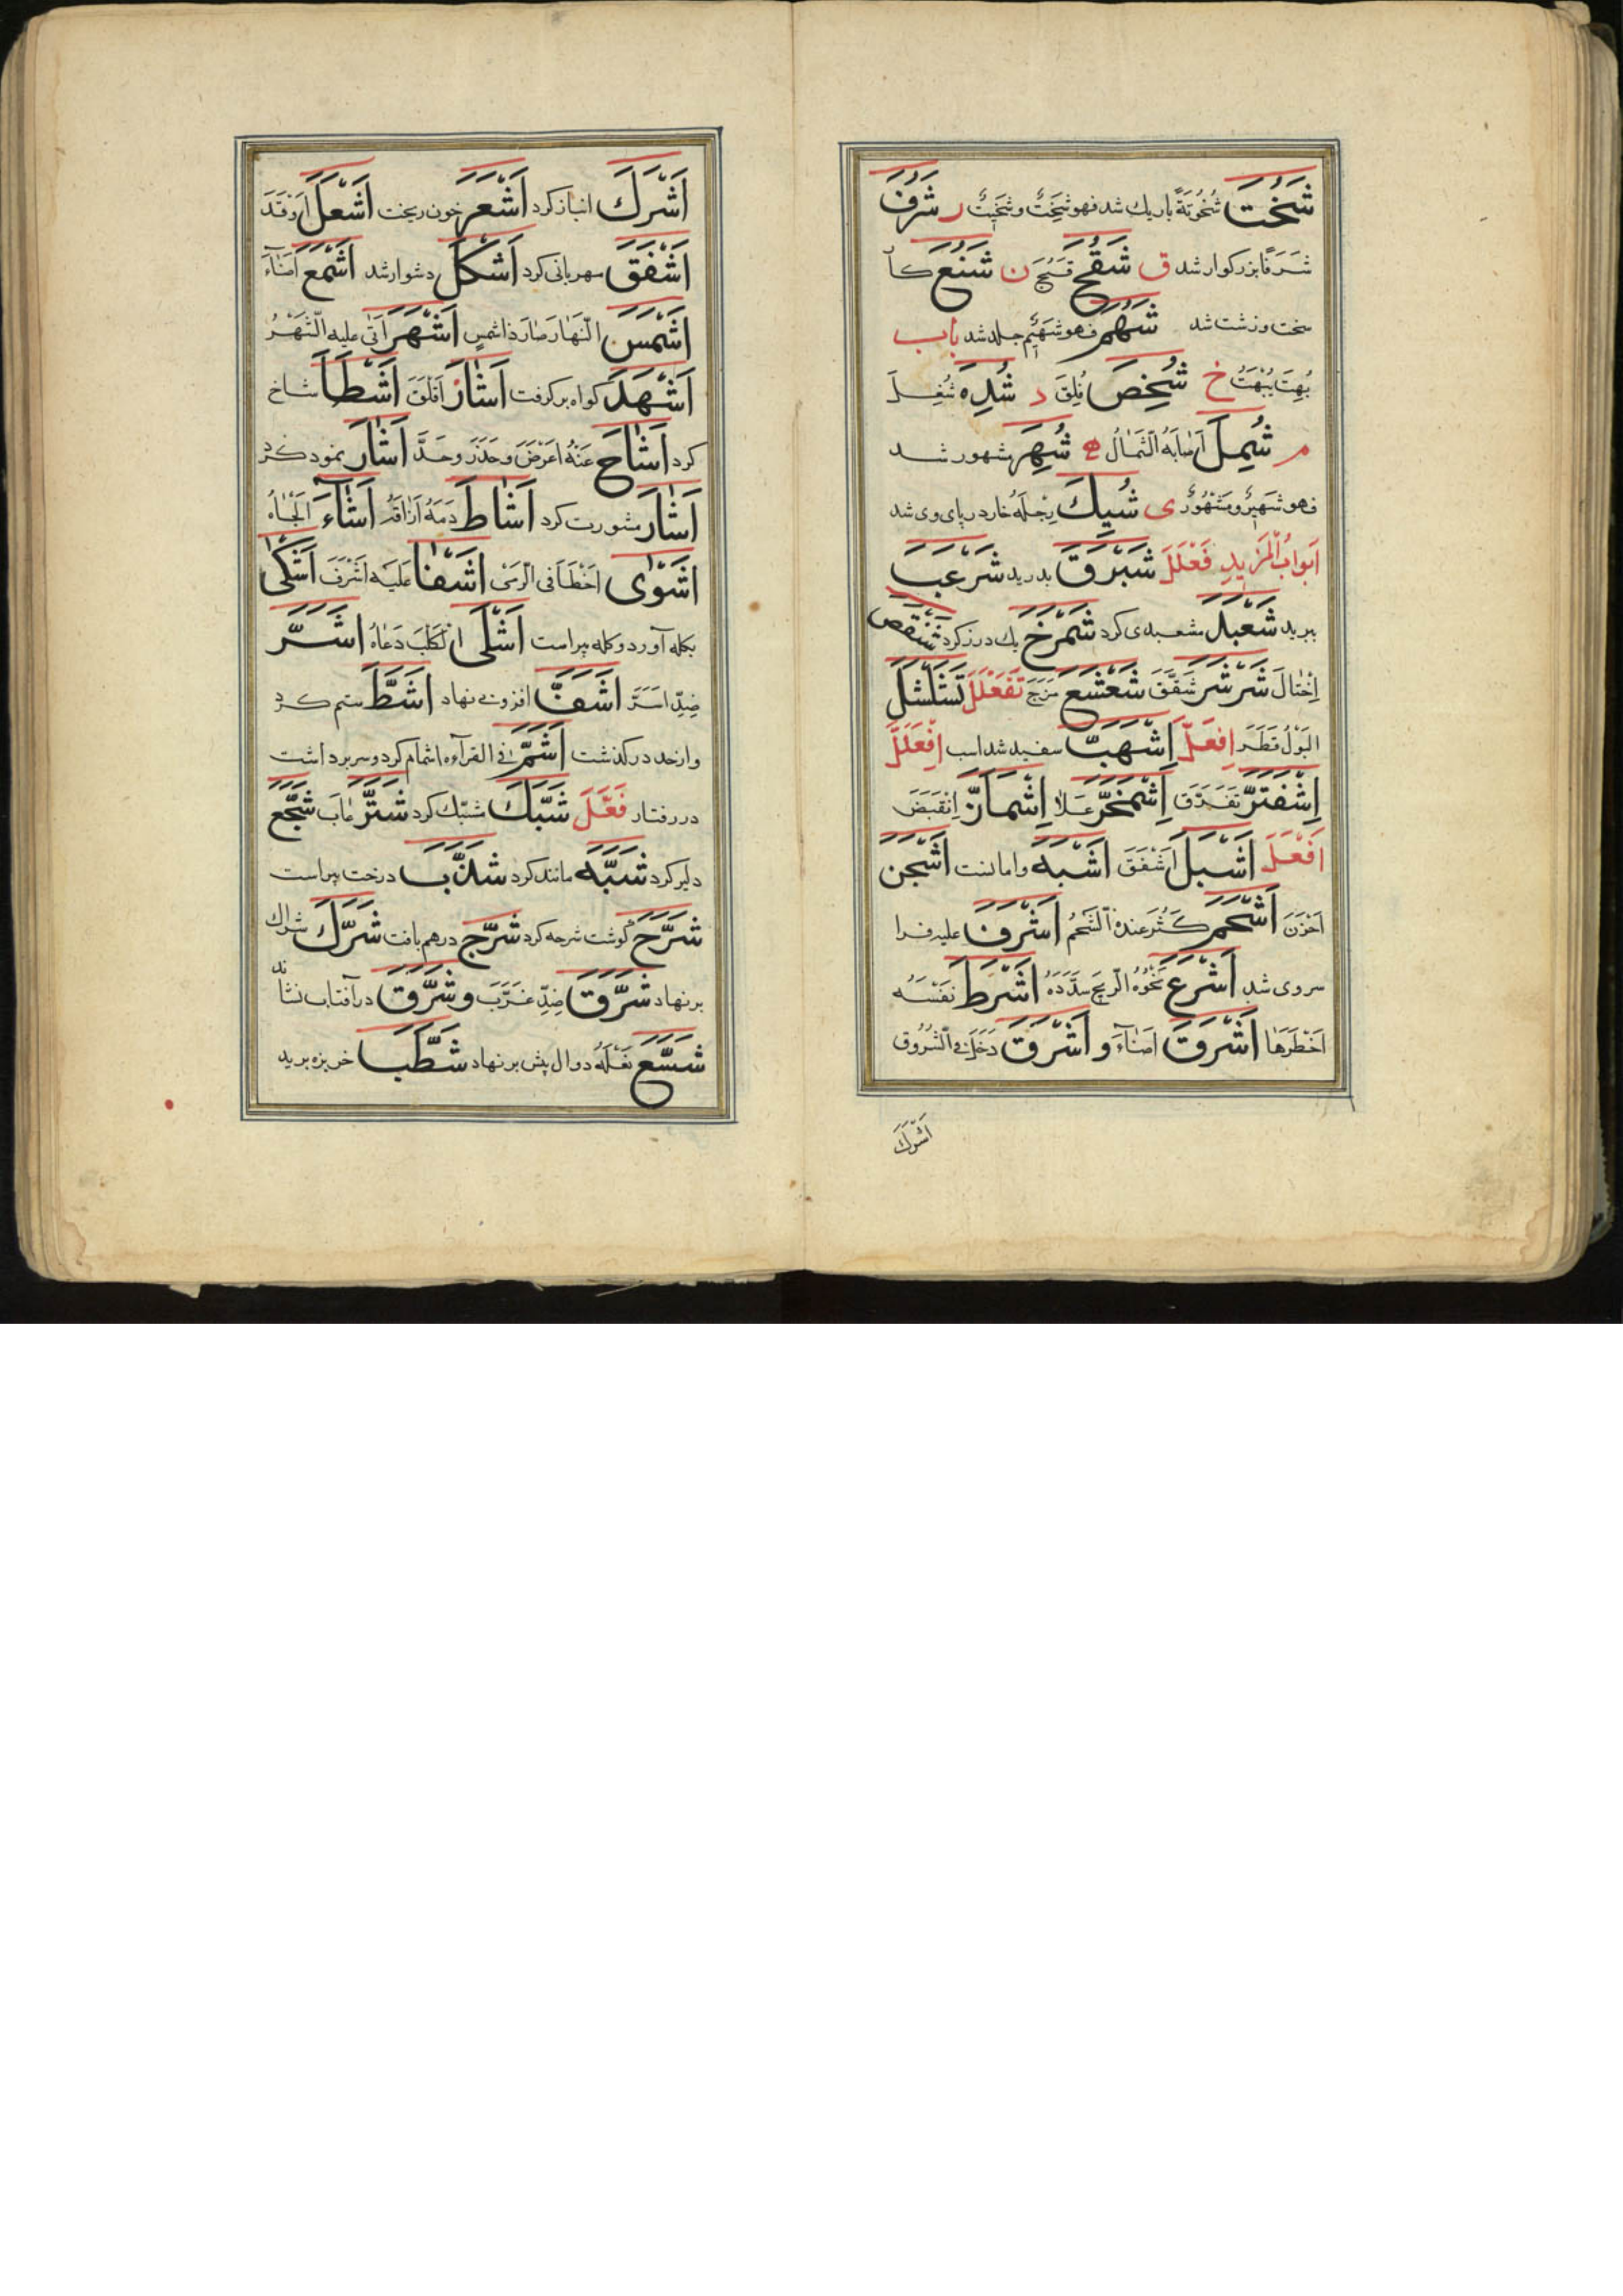 شَخُتَ شُخُوتَةً باریك شد فهو شَخْتٌ وشَخِيتٌ ر شَرُفَ
شَرَفًا بزرکوار شد ق شَقُحَ قَبُحَ ن شَنُعَ کا
سخت وزشت شد شَهُمَ فهو شَهْمٌ جلد شد باب
بُهِتَ يُبْهَتُ خ شُخِصَ قُلِقَ د شُدِهَ شُغِلَ
م شُمِلَ اَصٰابَهُ الشَّمٰالُ ه شُهِرَ مشهور شد
فهو شَهِيرٌ ومَشْهُورٌ ى شُيِكَ رِجْلُهُ خار در پای وی شد
اَبوابُ المَزيدِ فَعْلَلَ شَبْرَقَ بدرید شَرْعَبَ
ببرید شَعْبَدَ مشعبدی کرد شَمْرَخَ یك درز کرد
اِخْتٰالَ شَرْشَرَ شَقَّقَ شَعْشَعَ مَزَجَ تَفَعْلَلَ تَشَلْشَلَ
البَوْلُ قَطَرَ اِفْعَلَّ اِشْهَبَّ سفید شد اسب اِفْعَلَلَّ
اِشْفَتَرَّ تَفَرَّقَ اِشْمَخَرَّ عَلاٰ اِشْمَاَزَّ اِنْقَبَضَ
اَفْعَلَ اَشْبَلَ اَشْفَقَ اَشْبَهَ واماننت اَشْجَنَ
اَحْزَنَ اَشْحَمَ كَثُرَ عنده الشَّحْمُ اَشْرَفَ عليه فرا
سروی شد اَشْرَعَ نَحْوَهُ الرُّمْحَ سَدَّدَهُ اَشْرَطَ نَفْسَهُ
اَخْطَرَهٰا اَشْرَقَ اَضٰآءَ و اَشْرَقَ دَخَلَ فِى الشُّرُوق
اَشْرَكَ
اَشْرَكَ انباز کرد اَشْعَرَ خون ریخت اَشْعَلَ اَوْقَدَ
اَشْفَقَ مهربانی کرد اَشْكَلَ دشوار شد اَشْمَعَ اَضٰآءَ
اَشْمَسَ النَّهٰار صٰارَ ذا شمسٍ اَشْهَرَ اَتٰى عليه الشَّهْرُ
اَشْهَدَ کواه بر کرفت اَشٰازَ اَقْلَقَ اَشْطَأَ شاخ
کرد اَشٰاحَ عَنْهُ اَعْرَضَ وحَذَرَ وجَدَّ اَشٰارَ نمود کرد
اَشٰارَ مشورت کرد اَشٰاطَ دَمَهُ اَرٰاقَهُ اَشٰآءَ اَلْجَأهُ
اَشْوٰى اَخْطَأَ فى الرَّمْى اَشْفٰا عَلَيْه اَشْرَفَ اَشْكٰى
بکله آورد وکله پیراست اَشْلٰى الْكَلْبَ دَعٰاهُ اَشَرَّ
ضِدُّ اَسَرَّ اَشَفَّ افزونی نهاد اَشَطَّ ستم کرد
واز حد در کذشت اَشَمَّ فى القرآءة اشمام کرد وسر برداشت
در رفتار فَعَّلَ شَبَّكَ مشبّك کرد شَتَّرَ عٰابَ شَجَّعَ
دلیر کرد شَبَّهَ مانند کرد شَذَّبَ درخت پیراست
شَرَّحَ کوشت شرحه کرد شَرَّجَ درهم بافت شَرَّكَ شراك
بر نهاد شَرَّقَ ضِدُّ غَرَّبَ و شَرَّقَ در آفتاب نشاند
شَسَّعَ نَعْلَهُ دوال پیش بر نهاد شَطَّبَ خربزه برید